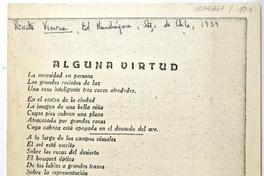 Revista Vimure, Ed. Mandrágora, Stgo. de Chile, 1939
ALGUNA VIRTUD
La necesidad en persona
Los grandes recintos de luz
Una rosa inteligente tres veces alrededor.
En el centro de la ciudad
La imagen de una bella niña
Cuyos pies cubren una plaza
Atravesada por grandes rocas
Cuya cabeza está apoyada en el desnudo del ave.
A lo largo de los campos visuales
El sol está escrito
Sobre las rocas del desierto
El bouquet óptico
De tus labios a grandes trazos
Sobre la representación